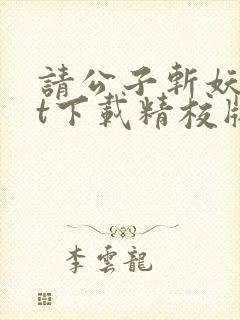 請公子斬妖
t下載精校版
李雲龍